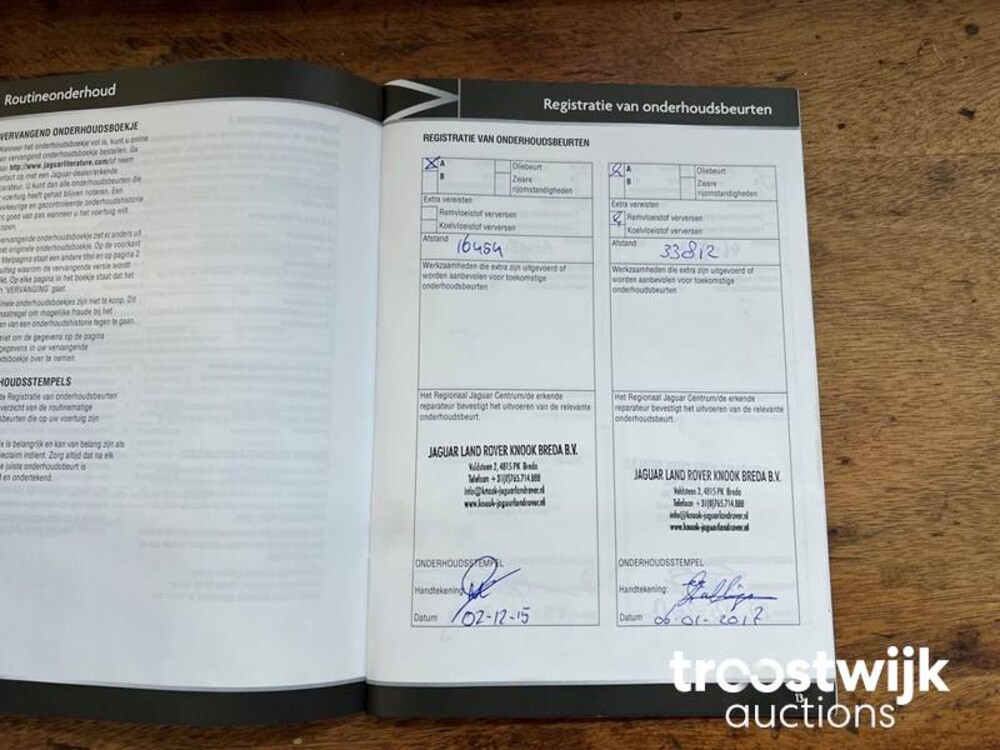 Routineonderhoud
VERVANGEND ONDERHOUDSBOEKJE
Wanneer het onderhoudsboekje vol is, kunt u online
een vervangend onderhoudsboekje bestellen. Ga
naar http://www.jaguarliterature.com/of neem
contact op met een Jaguar-dealer/erkende
reparateur. U kunt dan alle onderhoudsbeurten die
voertuig heeft gehad blijven noteren. Een
en gecontroleerde onderhoudshistorie
goed van pas wanneer u het voertuig wilt
vervangende onderhoudsboekje ziet er anders uit
het originele onderhoudsboekje. Op de voorkant
titelpagina staat een andere titel en op pagina 2
uitleg waarom de vervangende versie wordt
Op elke pagina in het boekje staat dat het
'VERVANGING' gaat.
onderhoudsboekjes zijn niet te koop. Dit
maatregel om mogelijke fraude bij het
van een onderhoudshistorie tegen te gaan.
niet om de gegevens op de pagina
gegevens in uw vervangende
over te nemen.
de Registratie van onderhoudsbeurten
overzicht van de routinematige
die op uw voertuig zijn
is belangrijk en kan van belang zijn als
indient. Zorg altijd dat na elk
juiste onderhoudsbeurt is
en ondertekend.
Registratie van onderhoudsbeurten
REGISTRATIE VAN ONDERHOUDSBEURTEN
X A Oliebeurt
B Zware
rijomstandigheden
Extra vereisten
Remvloeistof verversen
Koelvloeistof verversen
Afstand 16454
Werkzaamheden die extra zijn uitgevoerd of
worden aanbevolen voor toekomstige
onderhoudsbeurten
Het Regionaal Jaguar Centrum/de erkende
reparateur bevestigt het uitvoeren van de relevante
onderhoudsbeurt.
JAGUAR LAND ROVER KNOOK BREDA B.V.
Veldsteen 2, 4815 PK Breda
Telefoon +31(0)765.714.888
info@knook-jaguarlandrover.nl
www.knook-jaguarlandrover.nl
ONDERHOUDSSTEMPEL
Handtekening:
Datum 02-12-15
A Oliebeurt
B Zware
rijomstandigheden
Extra vereisten
Remvloeistof verversen
Koelvloeistof verversen
Afstand 33812
Werkzaamheden die extra zijn uitgevoerd of
worden aanbevolen voor toekomstige
onderhoudsbeurten
Het Regionaal Jaguar Centrum/de erkende
reparateur bevestigt het uitvoeren van de relevante
onderhoudsbeurt.
JAGUAR LAND ROVER KNOOK BREDA B.V.
Veldsteen 2, 4815 PK Breda
Telefoon +31(0)765.714.888
info@knook-jaguarlandrover.nl
www.knook-jaguarlandrover.nl
ONDERHOUDSSTEMPEL
Handtekening:
Datum 06-01-2017
13
troostwijk
auctions